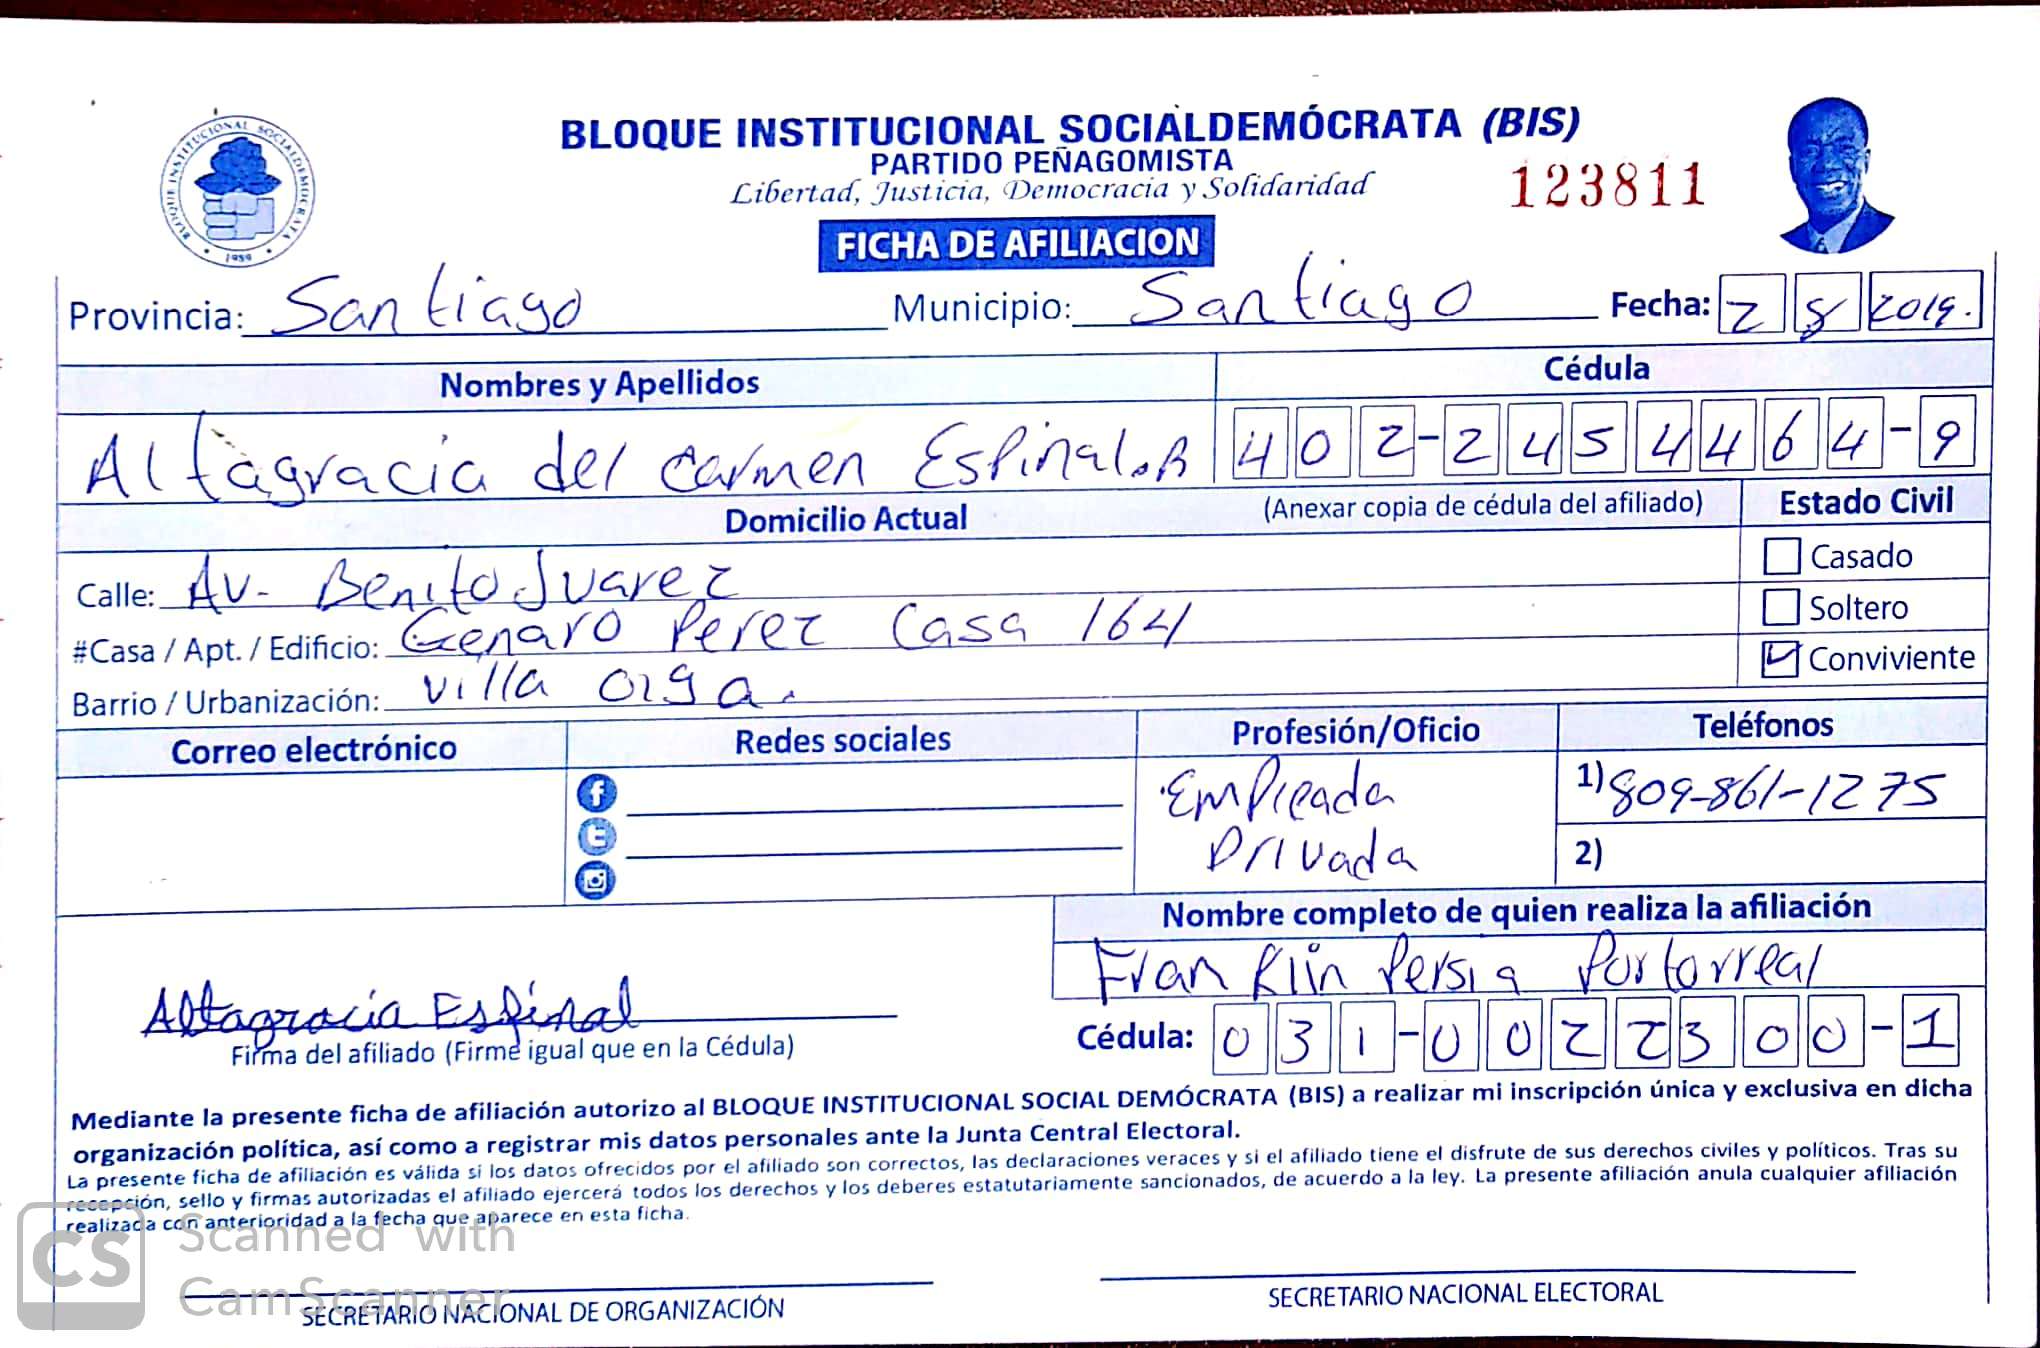 BLOQUE INSTITUCIONAL SOCIALDEMÓCRATA (BIS)
PARTIDO PEÑAGOMISTA
Libertad, Justicia, Democracia y Solidaridad
123811
BLOQUE INSTITUCIONAL SOCIALDEMOCRATA
1989
FICHA DE AFILIACION
Provincia: Santiago Municipio: Santiago Fecha: 2 8 2019.
Nombres y Apellidos Cédula
Altagracia del Carmen Espinal.R 402-2454464-9
Domicilio Actual (Anexar copia de cédula del afiliado) Estado Civil
Casado
Calle: Av. Benito Juarez
Soltero
#Casa / Apt. / Edificio: Genaro Perez Casa 164
Conviviente
Barrio / Urbanización: Villa Olga.
Correo electrónico Redes sociales Profesión/Oficio Teléfonos
Empleada 1) 809-861-1275
Privada 2)
Nombre completo de quien realiza la afiliación
Franklin Persia Portorreal
Altagracia Espinal
Firma del afiliado (Firme igual que en la Cédula) Cédula: 031-0022300-1
Mediante la presente ficha de afiliación autorizo al BLOQUE INSTITUCIONAL SOCIAL DEMÓCRATA (BIS) a realizar mi inscripción única y exclusiva en dicha
organización política, así como a registrar mis datos personales ante la Junta Central Electoral.
La presente ficha de afiliación es válida si los datos ofrecidos por el afiliado son correctos, las declaraciones veraces y si el afiliado tiene el disfrute de sus derechos civiles y políticos. Tras su
recepción, sello y firmas autorizadas el afiliado ejercerá todos los derechos y los deberes estatutariamente sancionados, de acuerdo a la ley. La presente afiliación anula cualquier afiliación
realizada con anterioridad a la fecha que aparece en esta ficha.
CS Scanned with
CamScanner
SECRETARIO NACIONAL DE ORGANIZACIÓN SECRETARIO NACIONAL ELECTORAL